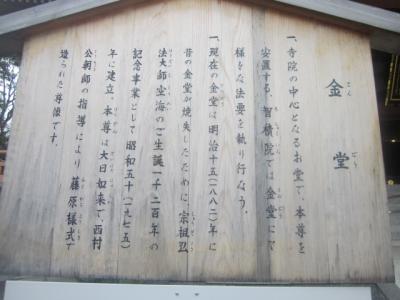 金堂
こん どう
一、寺院の中心となるお堂で、本尊を
安置する。智積院では金堂にて
様々な法要を執り行なう。
一、現在の金堂は明治十五(一八八二)年に
昔の金堂が焼失したために、宗祖弘
法大師空海のご生誕一千二百年の
記念事業として昭和五十(一九七五)
年に建立。本尊は大日如来で、西村
公朝師の指導により藤原様式で
造られた尊像です。